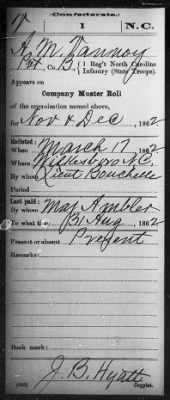 Confederate.
1 N.C.
A. M. Tannoy
Pvt, Co. B, 1 Reg't North Carolina
Infantry (State Troops)
Appears on
Company Muster Roll
of the organization named above,
for Nov & Dec, 1862
Enlisted:
When March 17 1862
Where Wilkesboro N.C.
By whom Lieut Bouchelle
Period
Last paid:
By whom Maj Ambler
To what time 31 Aug 1862
Present or absent Present
Remarks:
Book mark:
J. B. Hyatt
Copyist.